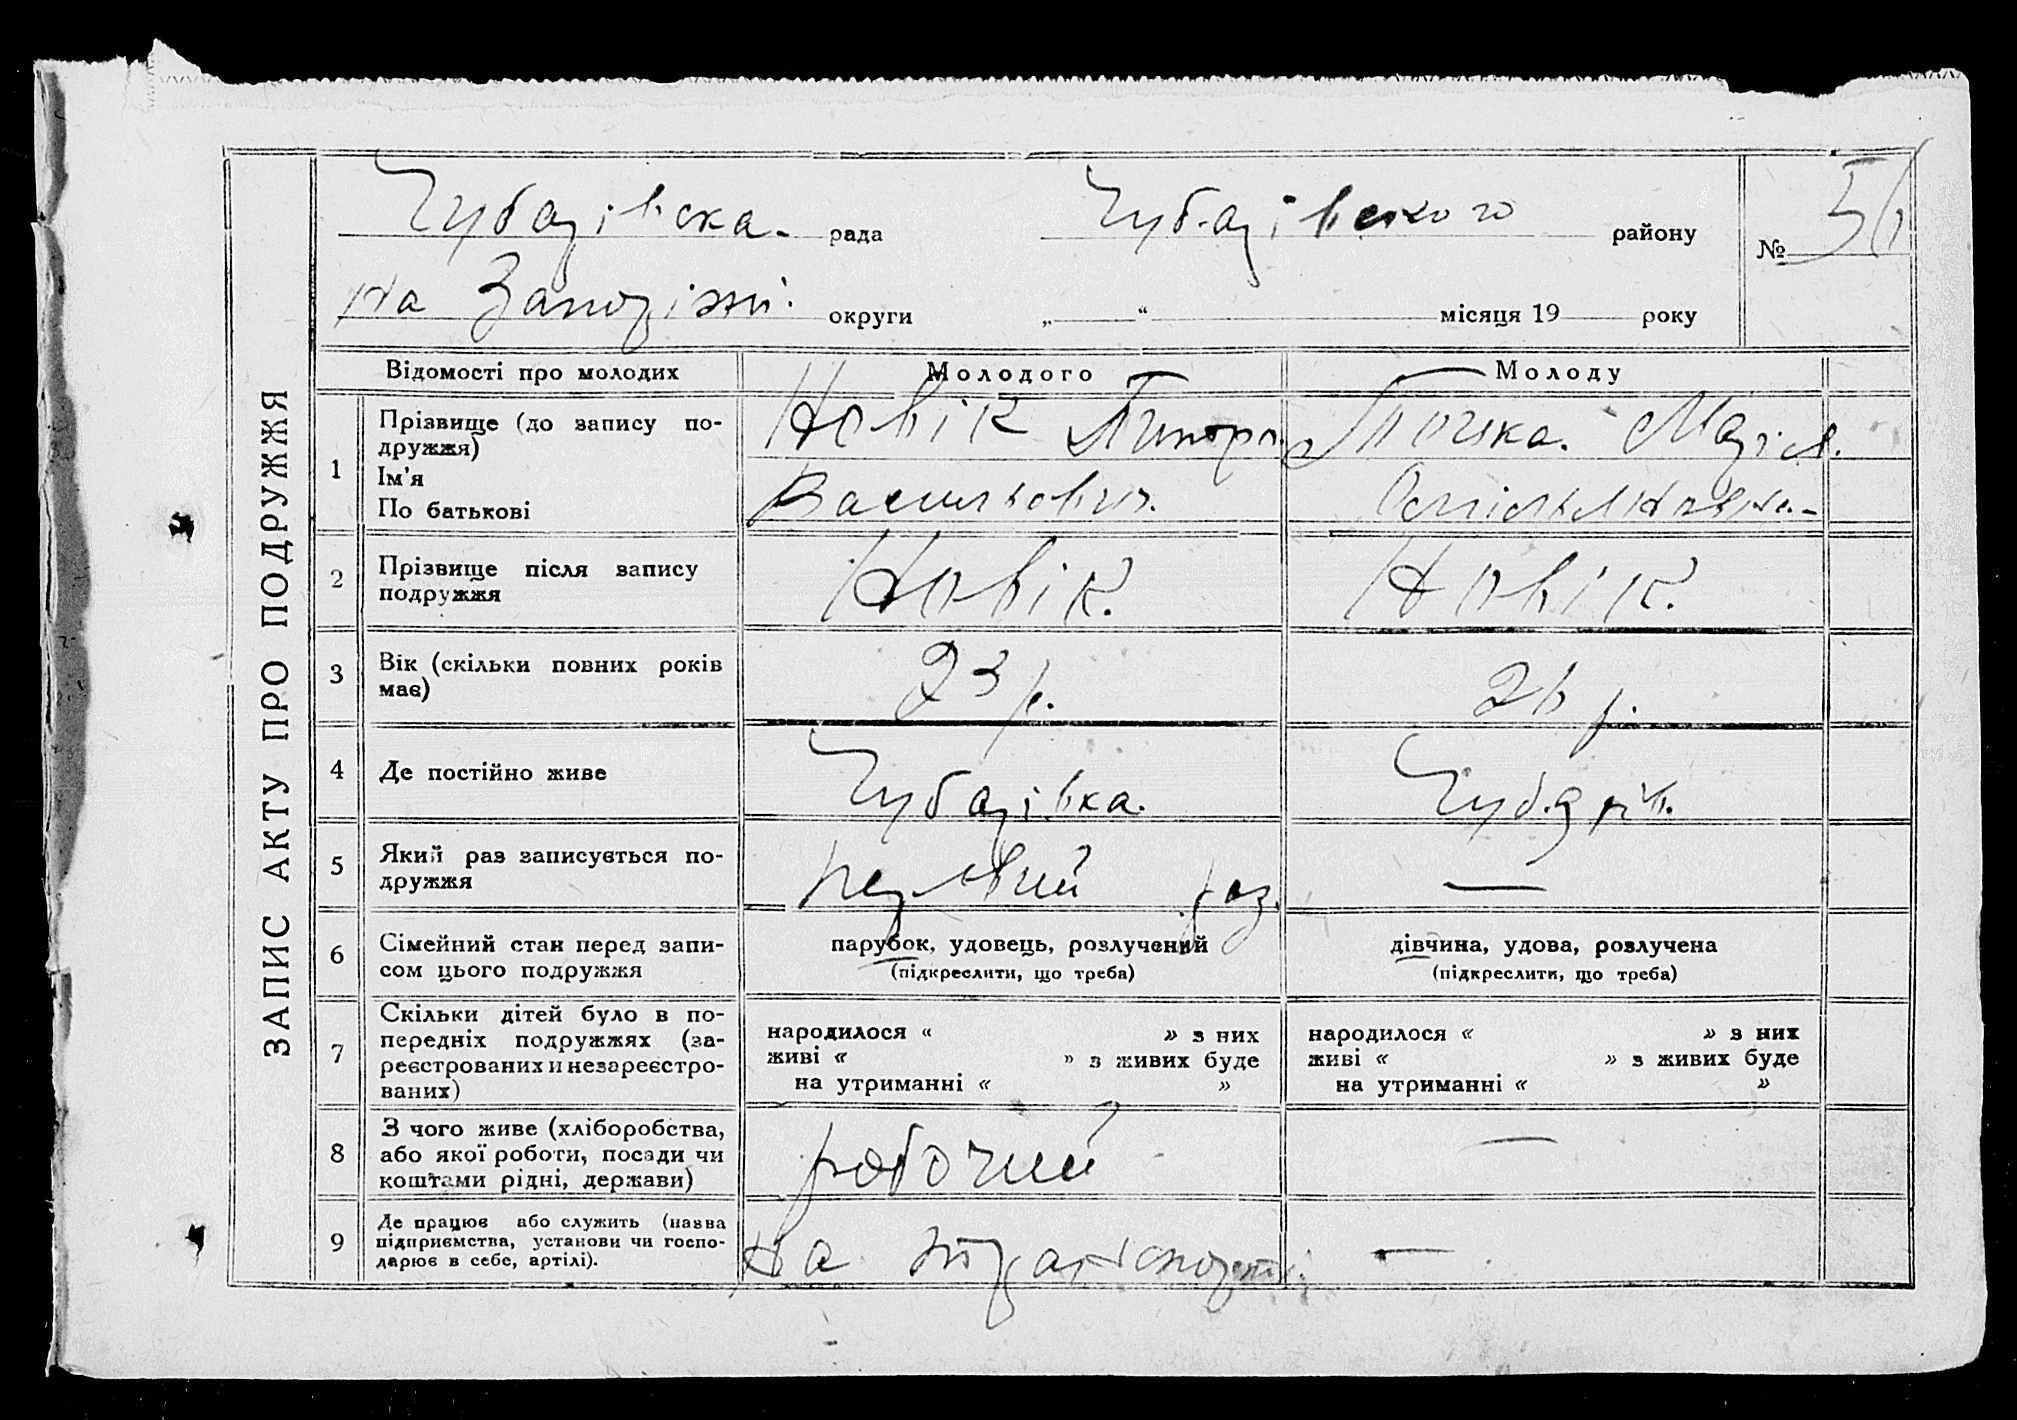 ЗАПИС АКТУ ПРО ПОДРУЖЖЯ
Чубарівска рада Чубарівського району № 56
на Запоріжжі округи „ “ місяця 19 року
Відомості про молодих Молодого Молоду
1 Прізвище (до запису по-
дружжя)
Ім'я
По батькові
Новік
Васильович.
Точка. Марія.
2 Прізвище після запису
подружжя
Новік.
Новік.
3 Вік (скільки повних років
має)
23 р.
26 р.
4 Де постійно живе
Чубарівка.
Чубарів.
5 Який раз записується по-
дружжя
первий раз.
—
6 Сімейний стан перед запи-
сом цього подружжя
парубок, удовець, розлучений
(підкреслити, що треба)
дівчина, удова, розлучена
(підкреслити, що треба)
7 Скільки дітей було в по-
передніх подружжях (за-
реєстрованих и незареєстро-
ваних)
народилося « » з них
живі « » з живих буде
на утриманні « »
народилося « » з них
живі « » з живих буде
на утриманні « »
8 З чого живе (хліборобства,
або якої роботи, посади чи
коштами рідні, держави)
робочий
—
9 Де працює або служить (назва
підприємства, установи чи госпо-
дарює в себе, артілі).
на транспорті
—